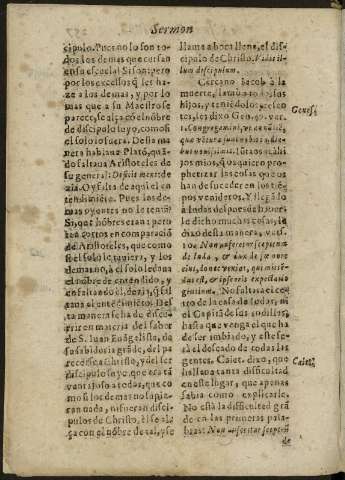 Sermon
cipulo. Pues no lo son to-
dos los demas que cursan
en su escuela? Si son: pero
por los excessos q̃ les ha-
ze a los demas, y por lo
mas que a su Maestro se
parece, se alça cõ el nõbre
de discipulo suyo, como si
el solo lo fuera. Desta ma
nera hablaua Platõ, quã-
do faltaua Aristoteles de
su general: Deficit intelle-
zia. O y falta de aqui el en
tendimiẽto. Pues los de-
mas oyentes no le teniã?
Si, que hõbres eran: pero
tan cortos en comparació
de Aristoteles, que como
si el solo le tuuiera, y los
demas no, à el solo le daua
el nõbre de entẽdido, y
en faltando èl, dezia, q̃ fal
taua el entẽdimiẽto. Des
ta manera se ha de discu-
rrir en materia del fabor
de S. Iuan Euãgelista, de
su sabiduria grãde, del pa
recerse a Christo, y del ser
discipulo suyo, que era tã
ventajoso a todos, que co
mo si los demas no supie-
ran nada, ni fueran disci-
pulos de Christo, èl se al-
ça con el nõbre de tal, y se
llama a boca llena, el dis-
cipulo de Christo. Vidit il-
lum discipulum.
Cercano Iacob à la
muerte, llamò a todos sus
hijos, y teniẽdolos presen-
tes, les dixo Gen. 49. ver.
1. Congregamini, vt annūtiē,
quæ ventura sunt vobis in die-
bus nouissimis. Iũtaos a mi hi
jos mios, q̃ os quiero pro-
phetizar las cosas que os
han de suceder en los tiẽ-
pos venideros. Y llegãdo
a Iudas despues de hauer-
le dicho muchas cosas, le
dixo desta manera, vers.
10. Non auferetur sceptrum
de Iuda, & dux de fœmore
eius, donec veniat, qui mitte-
dus est, & ipse erit expectatio
gentium. No faltarà el cet-
tro de la casa de Iudas, ni
el Capitã de sus rodillas,
hasta que venga el que ha
de ser imbiado, y este se-
rà el deseado de todas las
gentes. Caiet. dixo, que
hallaua tanta dificultad
en este lugar, que apenas
sabia como explicarle.
No està la dificulted grã
de en las primeras pala-
bras: Non auferetur sceptrū
de
Genes.
Caiet.